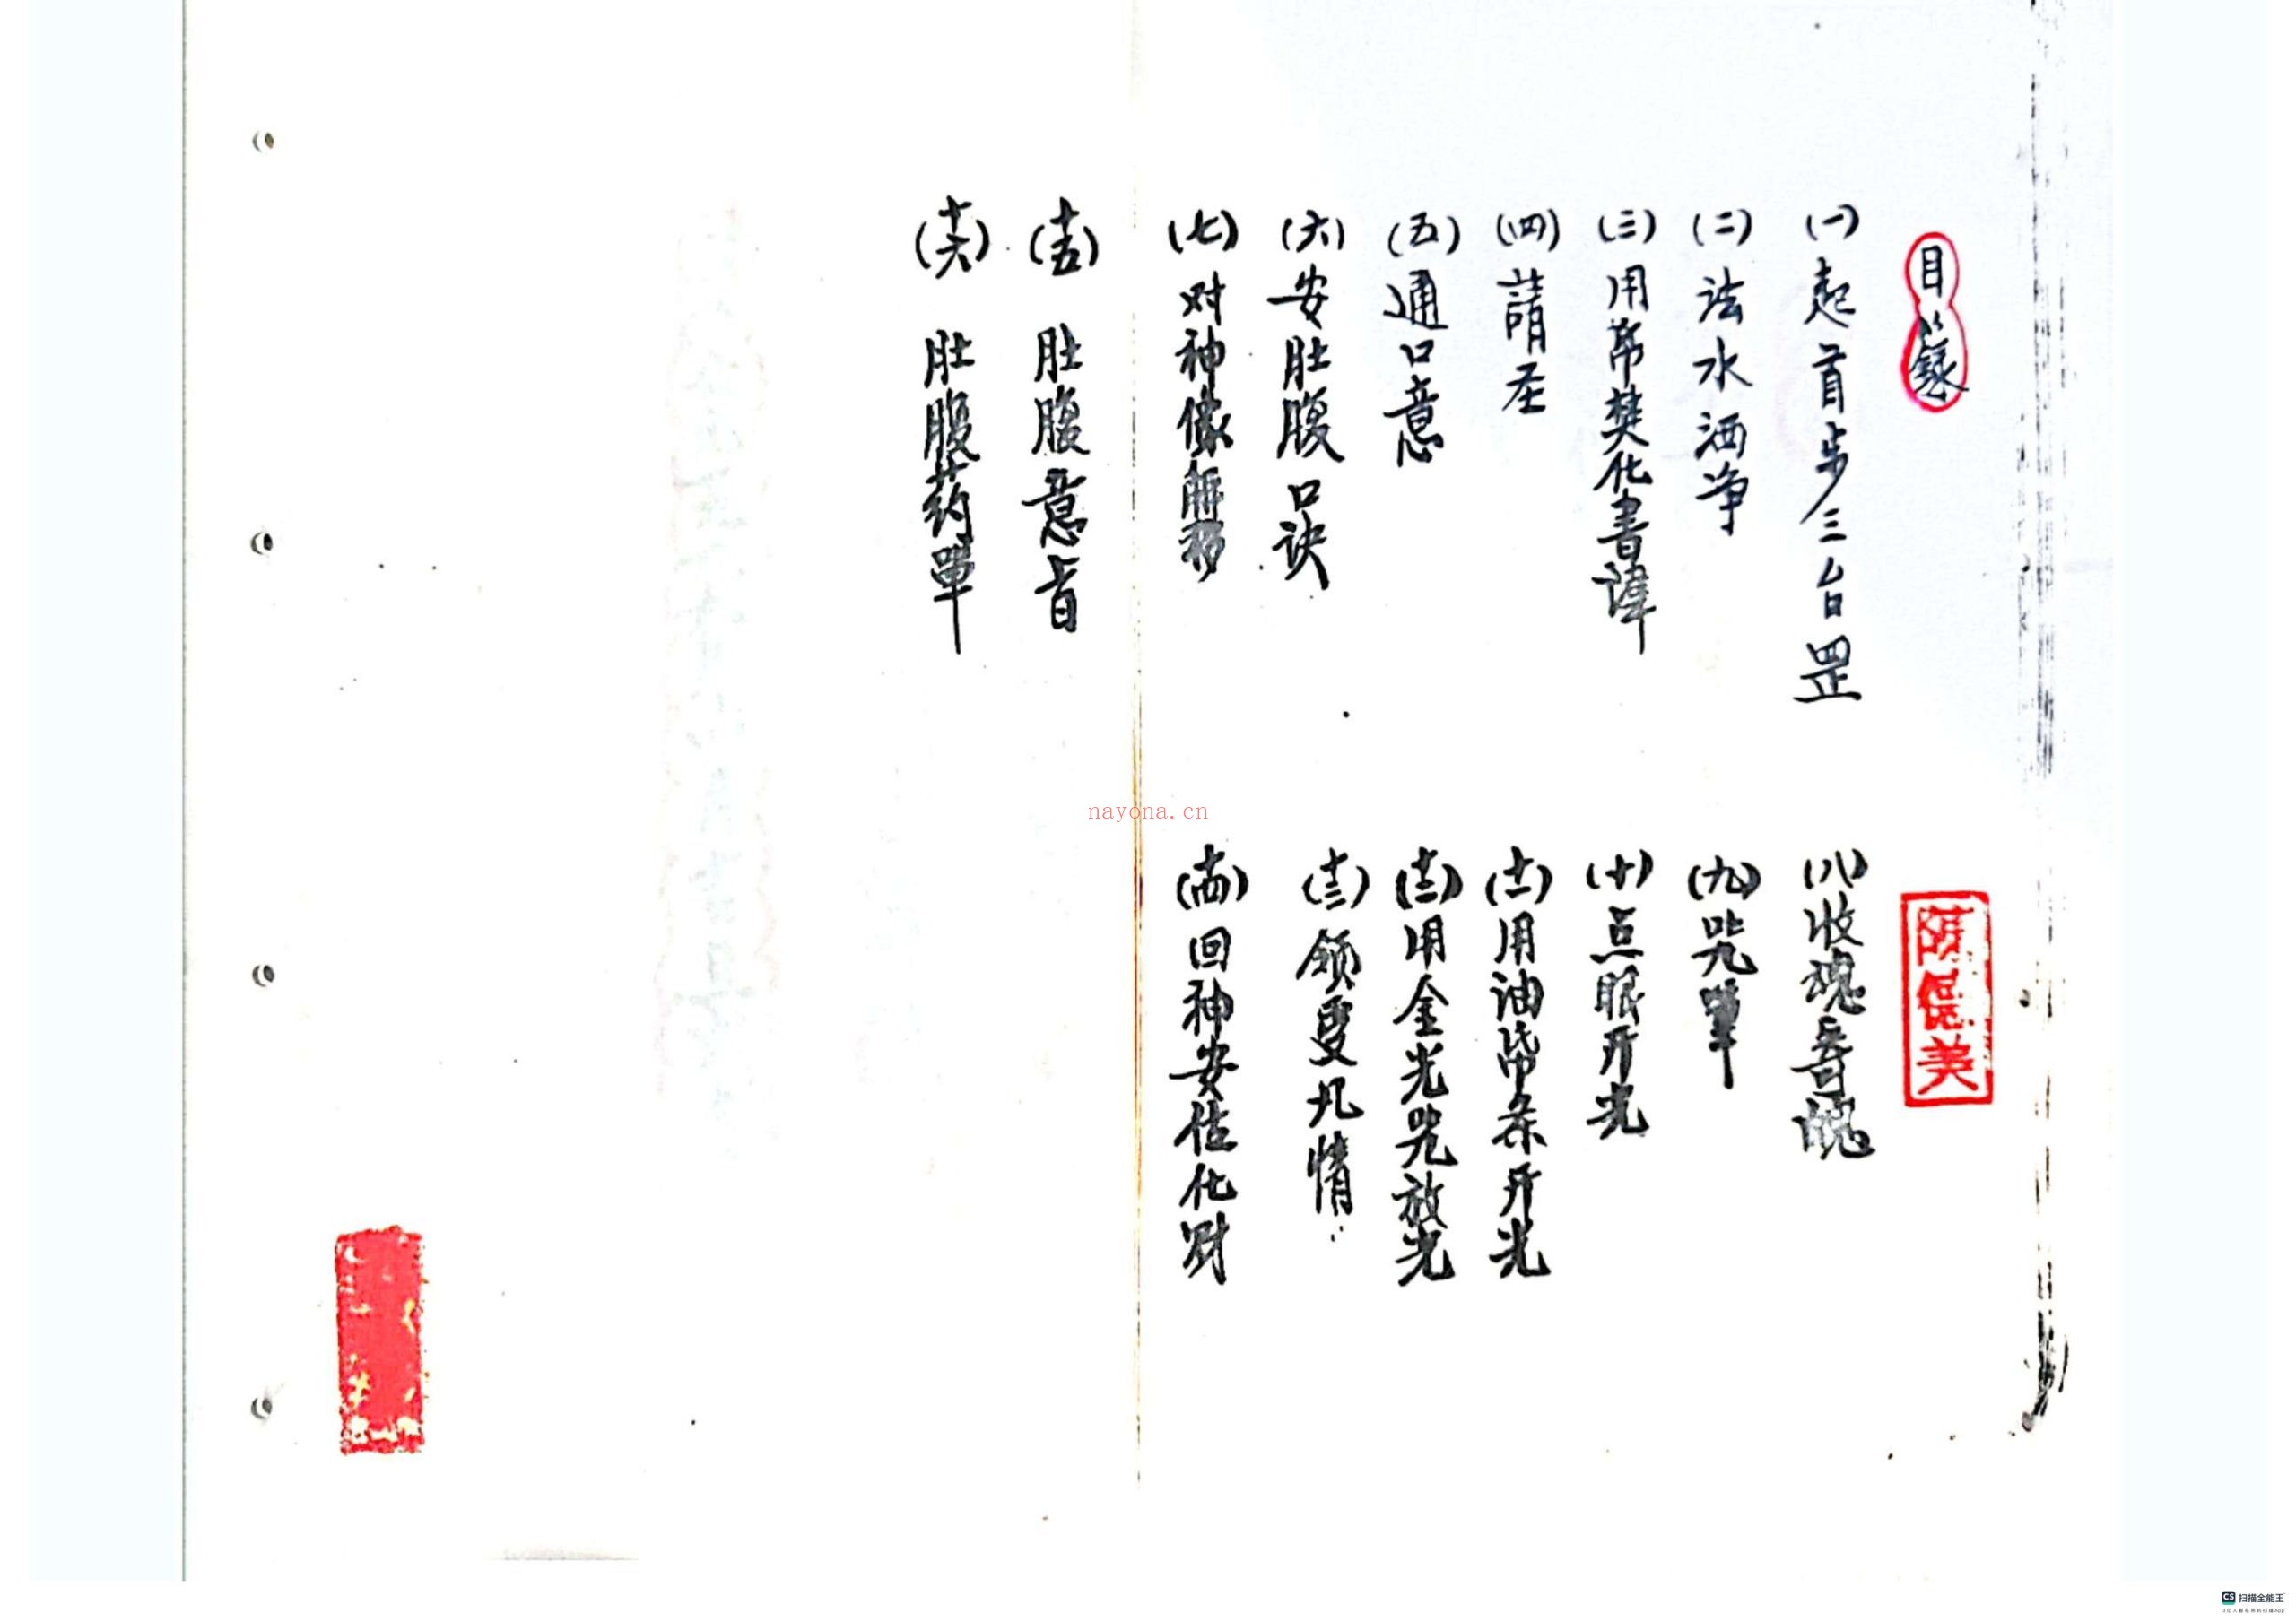 目籙
(一)起首步三台罡
(二)法水洒净
(三)用帛焚化書諱
(四)請圣
(五)通口意
(六)安肚腹口诀
(七)对神像解秽
(八)收魂寄魄
(九)咒筆
(十)点眼开光
(十一)用油帋条开光
(十二)用金光咒放光
(十三)领受凡情
(十四)回神安位化财
(十五)肚腹意旨
(十六)肚腹药單
nayona.cn
CS 扫描全能王